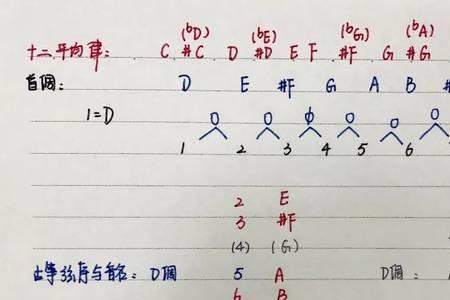 (bD) (bE) (bG) (bA)
十二平均律: C #C D #D E F #F G #G
音阶: D E #F G A B #
1=D
1 2 3 4 5 6
2 E
3 #F
(4) (G)
古筝弦序与音名: D调 5 A D调:
6 B